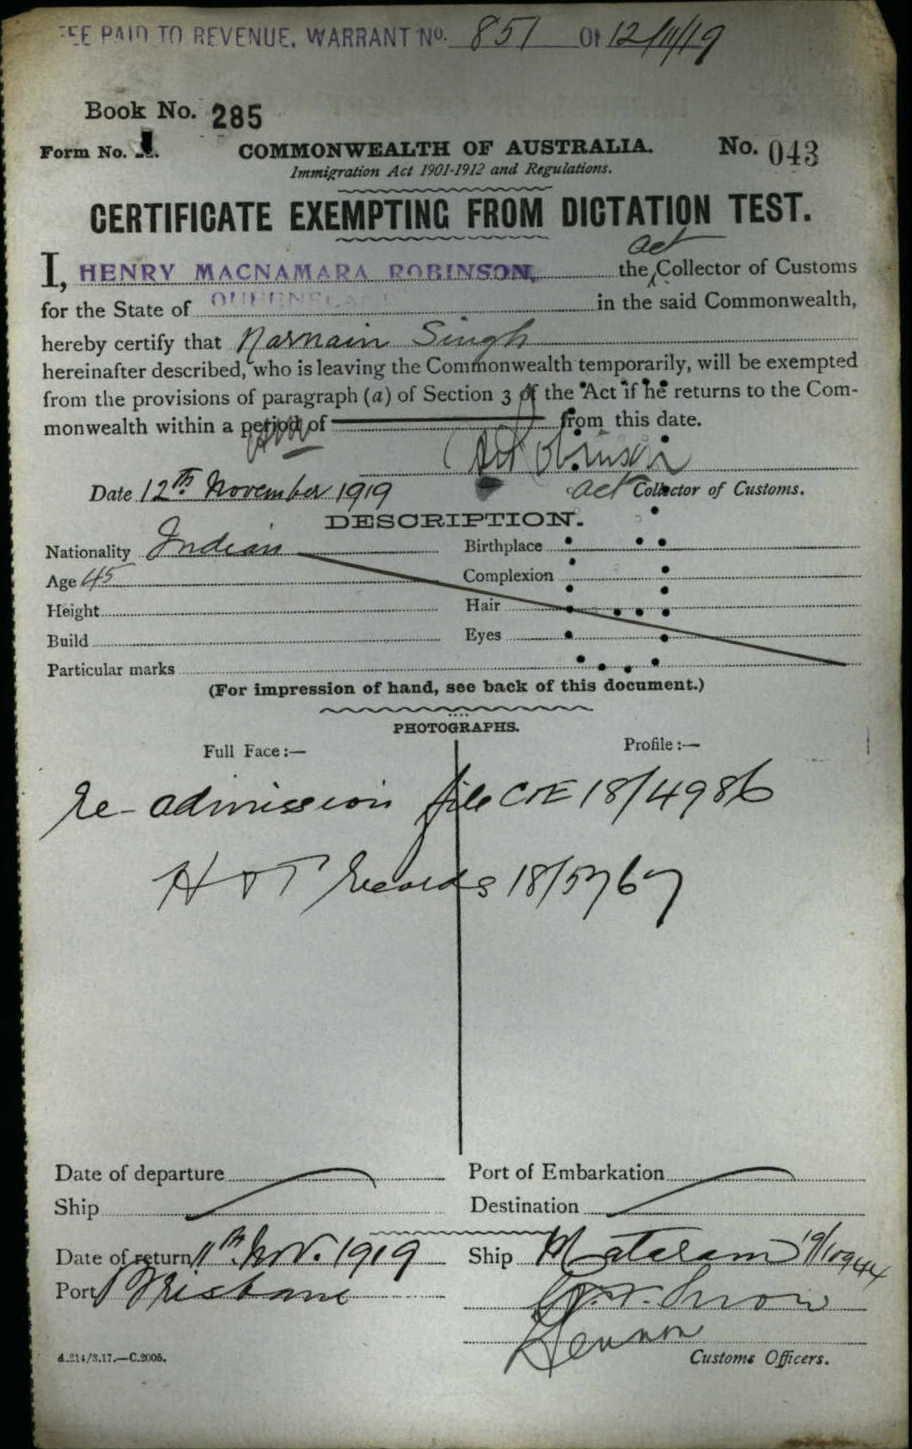 FEE PAID TO REVENUE. WARRANT No. 851 Of 12/11/19
Book No. 285
Form No.
COMMONWEALTH OF AUSTRALIA. No. 043
Immigration Act 1901-1912 and Regulations.
CERTIFICATE EXEMPTING FROM DICTATION TEST.
act
I, HENRY MACNAMARA ROBINSON, the Collector of Customs
for the State of QUEENSLAND in the said Commonwealth,
hereby certify that Narnain Singh
hereinafter described, who is leaving the Commonwealth temporarily, will be exempted
from the provisions of paragraph (a) of Section 3 of the Act if he returns to the Com-
monwealth within a period of from this date.
Date 12th November 1919 act Collector of Customs.
DESCRIPTION.
Nationality Indian Birthplace
Age 45 Complexion
Height Hair
Build Eyes
Particular marks
(For impression of hand, see back of this document.)
PHOTOGRAPHS.
Full Face:— Profile:—
Re-admission file 18/4986
H & T Records 18/5767
Date of departure Port of Embarkation
Ship Destination
Date of return 11th Nov. 1919 Ship Mataram
Port Brisbane
Customs Officers.